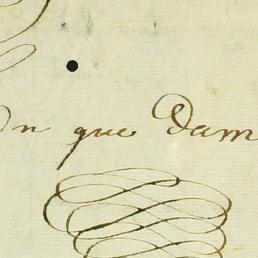 on que Dam